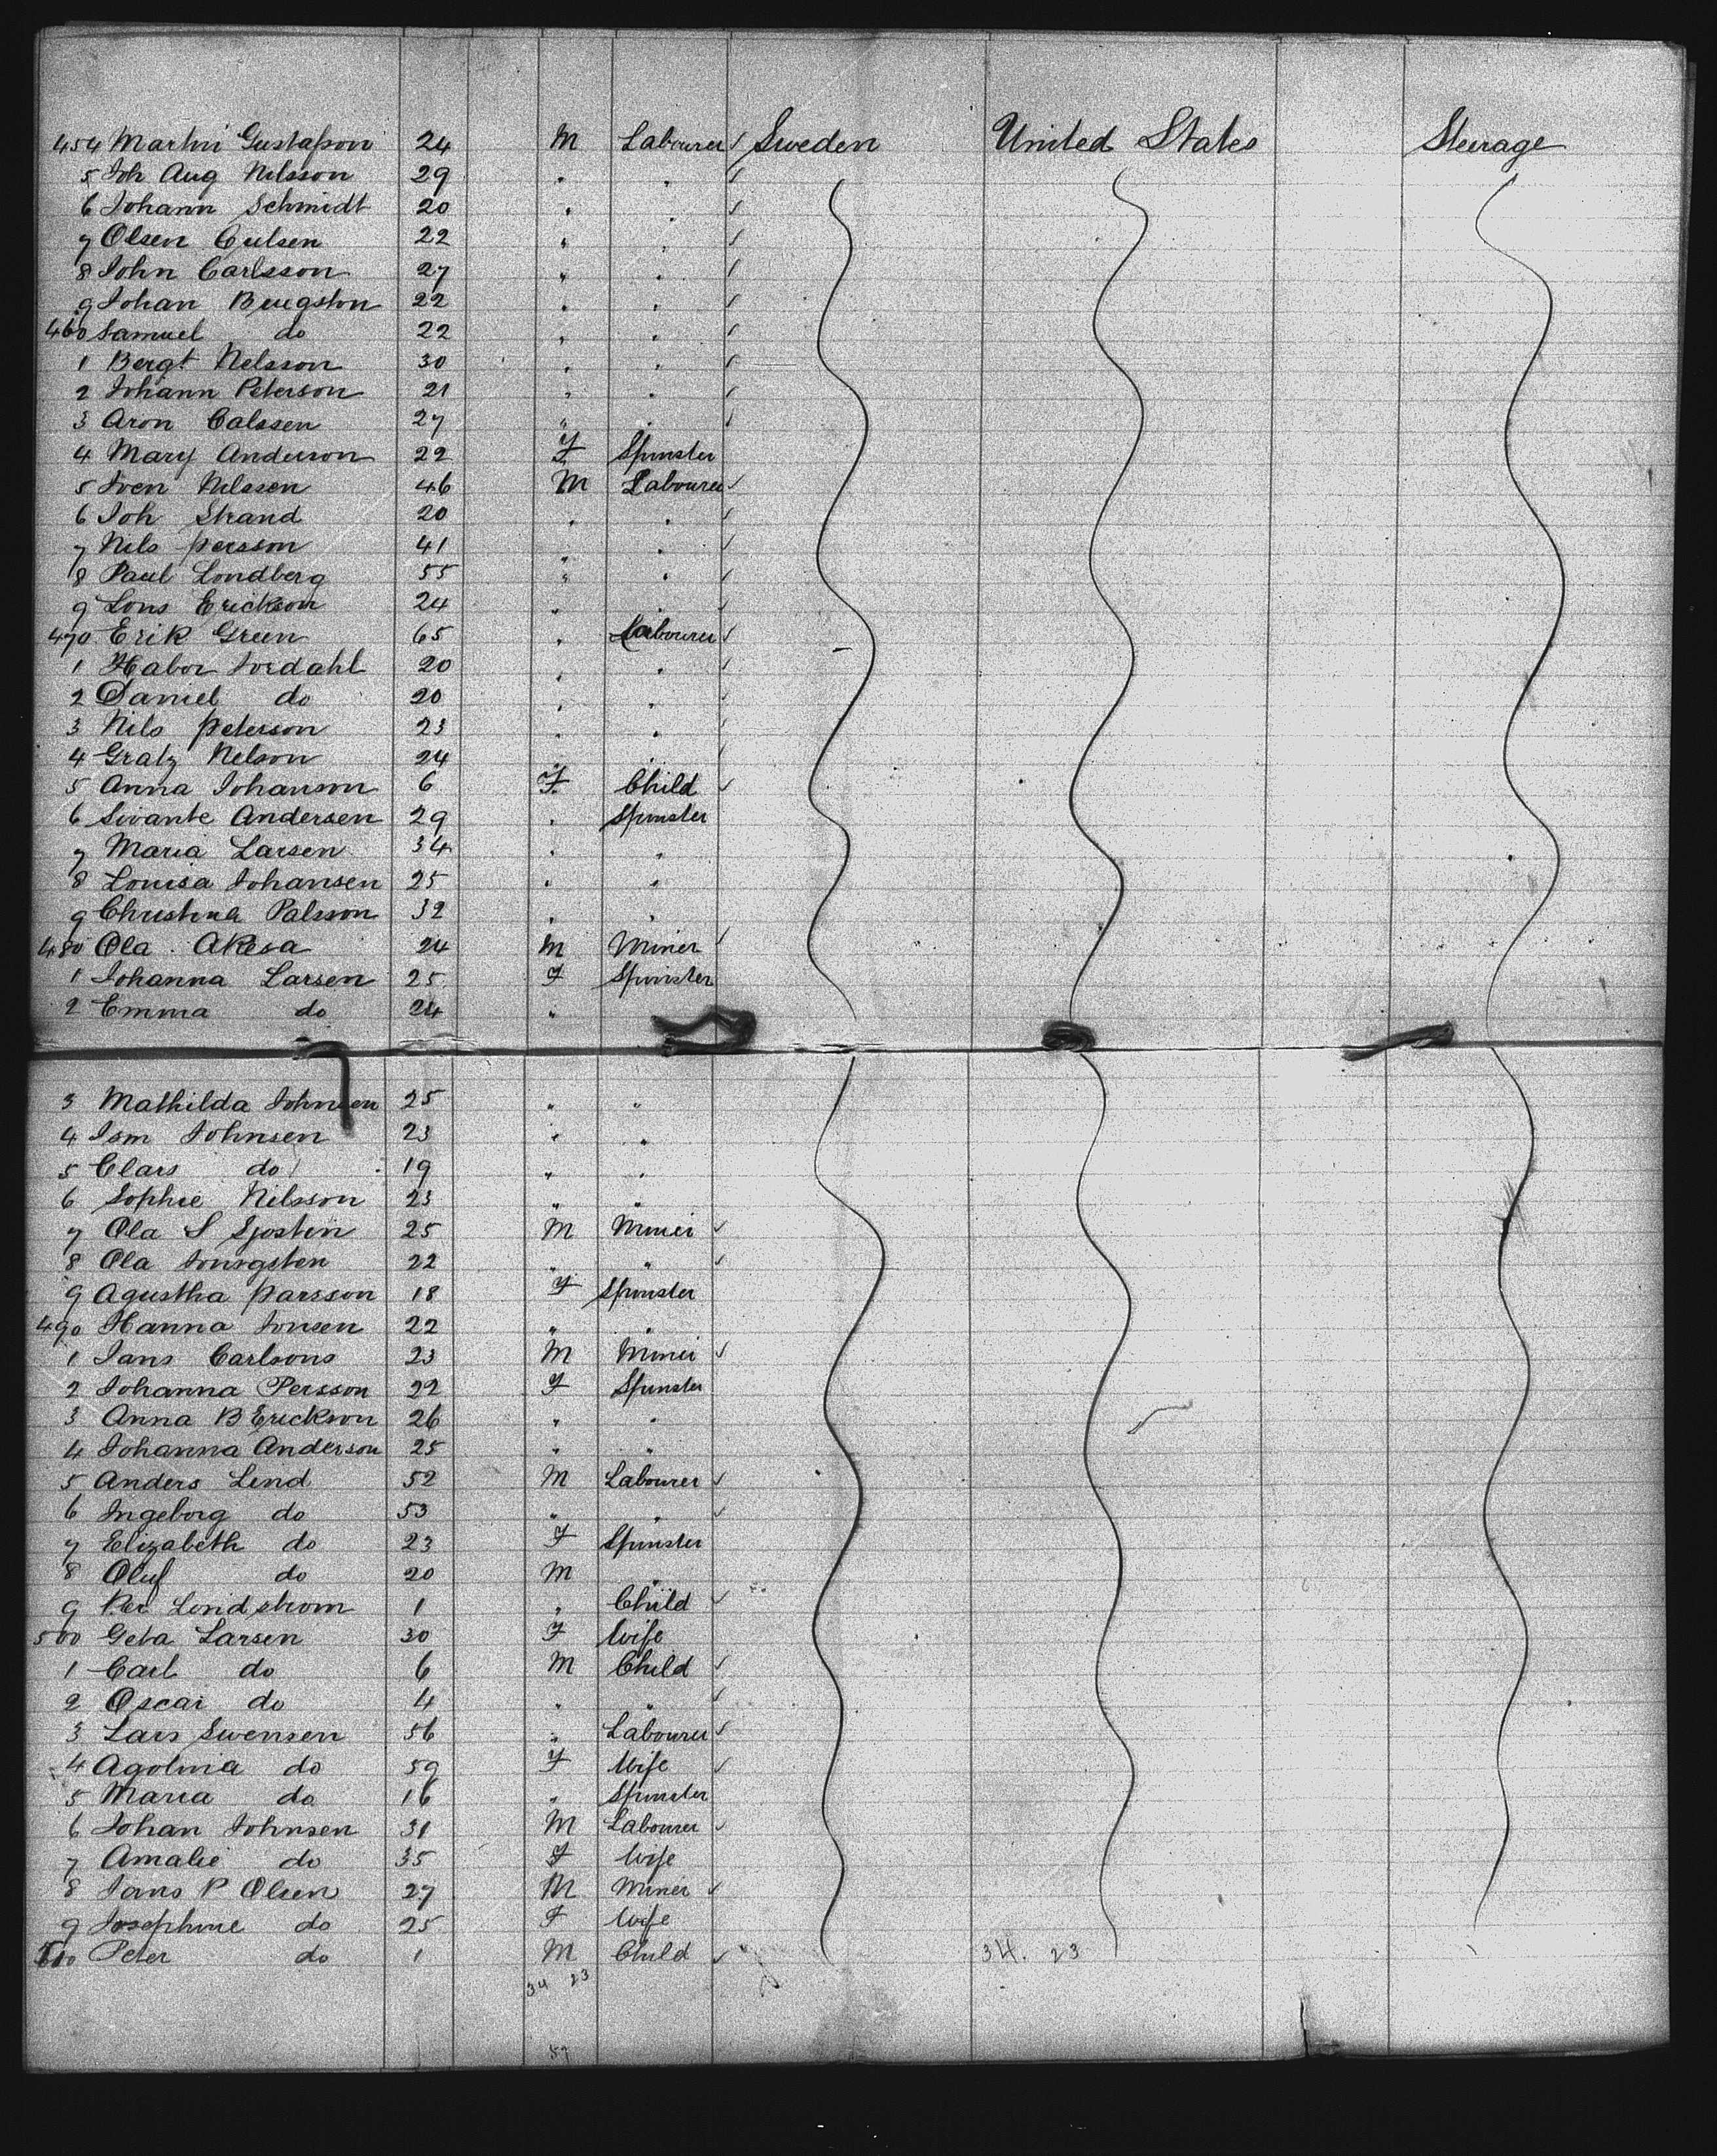 454 Martin Gustafson 24 M Labourer Sweden United States Steerage
5 Joh Aug Nilsson 29 " "
6 Johann Schmidt 20 " "
7 Olsen 22 " "
8 John Carlsson 27 " "
9 Johan Bengston 22 " "
460 Samuel do 22 " "
1 Bergt Nelsson 30 " "
2 Johann Peterson 21 " "
3 Aron Calssen 27 " "
4 Mary Anderson 22 F Spinster
5 Sven Nilssen 46 M Labourer
6 Joh Strand 20 " "
7 Nils persson 41 " "
8 Paul Londberg 55 " "
9 Lons Erickson 24 " "
470 Erik Green 65 " Labourer
1 Habor Jordahl 20 " "
2 Daniel do 20 " "
3 Nils peterson 23 " "
4 Gratz Nelson 24 " "
5 Anna Johanson 6 F Child
6 Sivante Andersen 29 " Spinster
7 Maria Larsen 34 " "
8 Louisa Johansen 25 " "
9 Christina Palsson 32 " "
480 Ola Akesa 24 M Miner
1 Johanna Larsen 25 F Spinster
2 Emma do 24 "
3 Mathilda Johnsen 25 " "
4 Ism Johnsen 23 " "
5 Clars do 19 " "
6 Sophie Nilsson 23 " "
7 Ola S Sjostin 25 M Miner
8 Ola 22 " "
9 Agustha parsson 18 F Spinster
490 Hanna Jonsen 22 " "
1 Jans Carlsons 23 M Miner
2 Johanna Persson 22 F Spinster
3 Anna B Erickson 26 " "
4 Johanna Anderson 25 " "
5 Anders Lind 52 M Labourer
6 Ingeborg do 53 " "
7 Elizabeth do 23 F Spinster
8 Oluf do 20 M "
9 Per Lindstrom 1 " Child
500 Geta Larsen 30 F Wife
1 Carl do 6 M Child
2 Oscar do 4 " "
3 Lars Swensen 56 " Labourer
4 Agolina do 59 F Wife
5 Maria do 16 " Spinster
6 Johan Johnsen 31 M Labourer
7 Amalie do 35 F Wife
8 Jans P Olsen 27 M Miner
9 Josephine do 25 F Wife
510 Peter do 1 M Child 34. 23
34 23
57